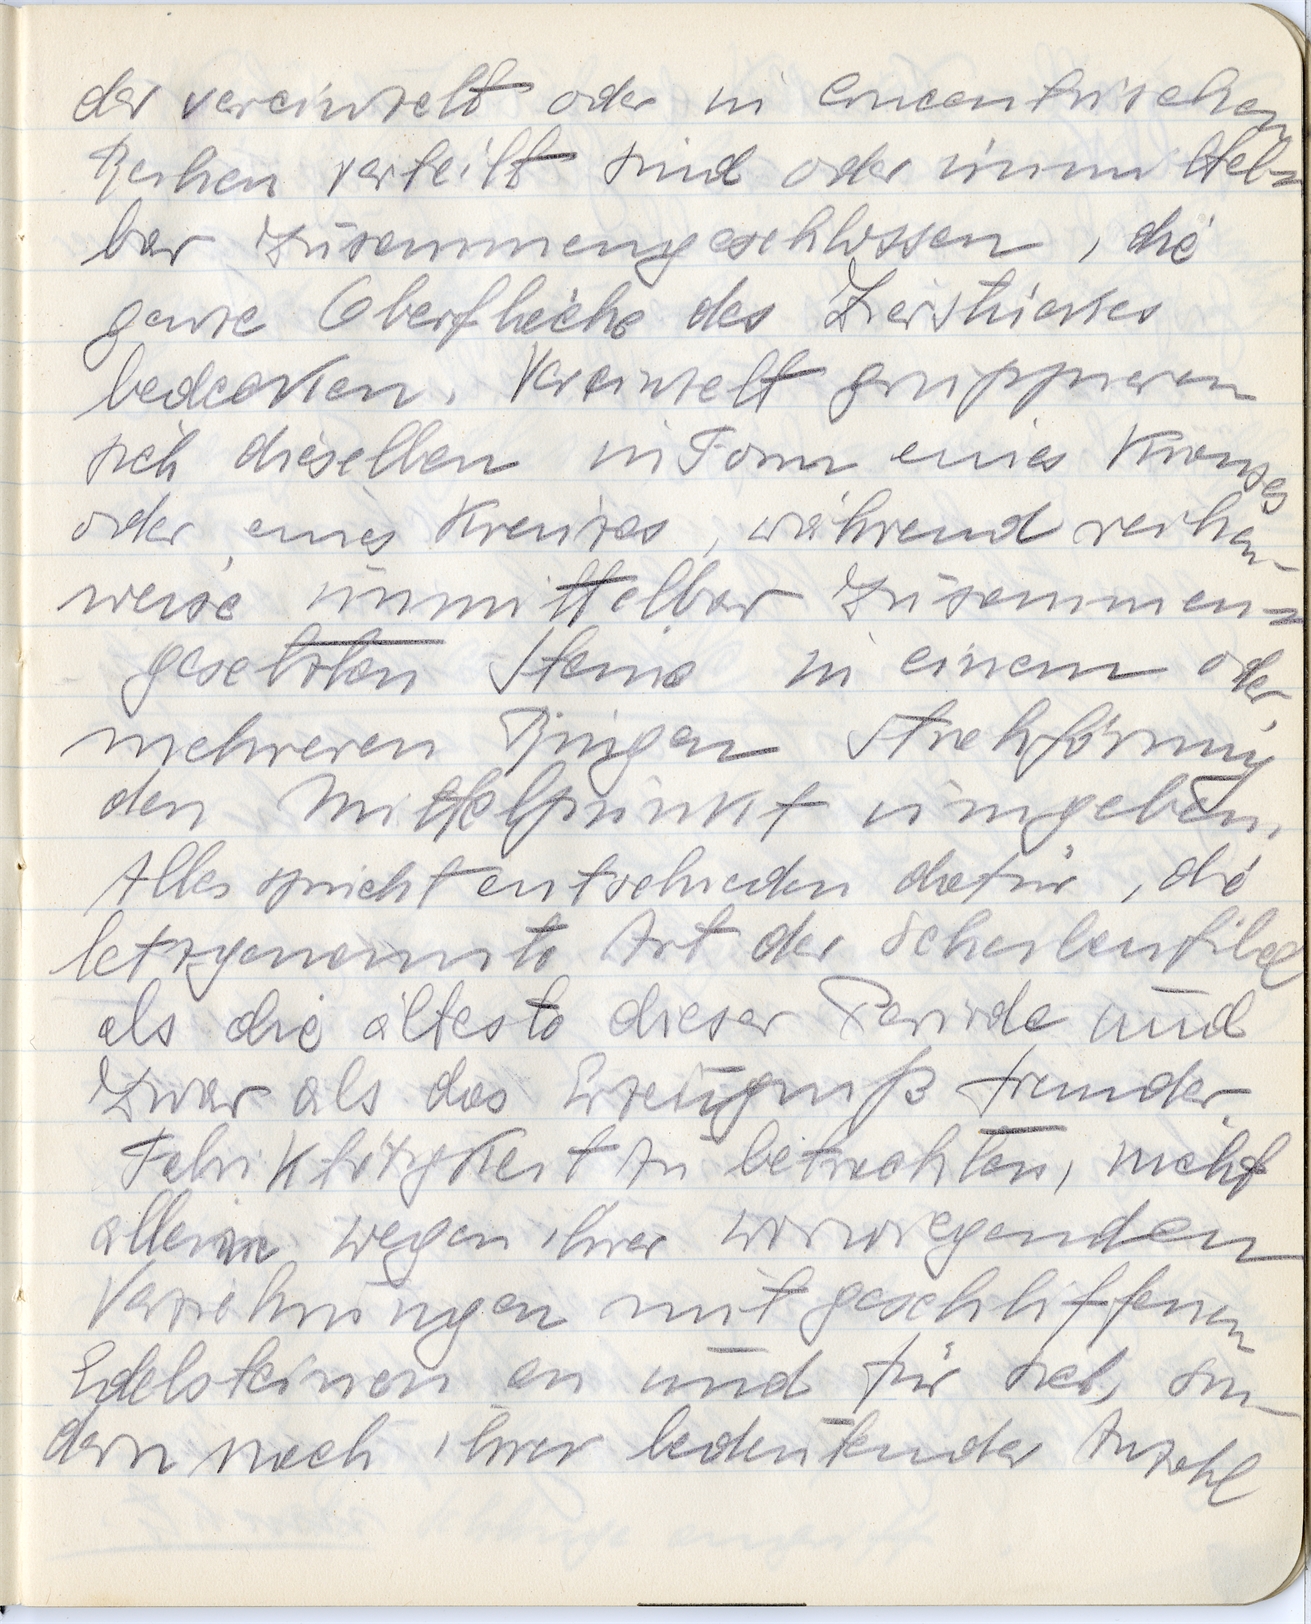 der vereinzelt oder in concentrischen
Reihen verteilt sind oder unmittel-
bar zusammengeschlossen, die
ganze Oberfläche des Zierstückes
bedecken. Vereinzelt gruppieren
sich dieselben in Form eines Kranzes
oder eines Kreuzes, während reihen-
weise unmittelbar zusammen-
gesetzten Steine in einem oder
mehreren Ringen strahlförmig
den Mittelpunkt umgeben.
Alles spricht entschieden dafür, die
letztgenannte Art der Scheibenfibel
als die älteste dieser Periode und
zwar als das Erzeugniß fremder
Fabriktätigkeit zu betrachten, nicht
allein wegen ihrer vorwiegenden
Verziehrungen mit geschliffenen
Edelsteinen an und für sich, son-
dern nach ihrer bedeutender Anzahl